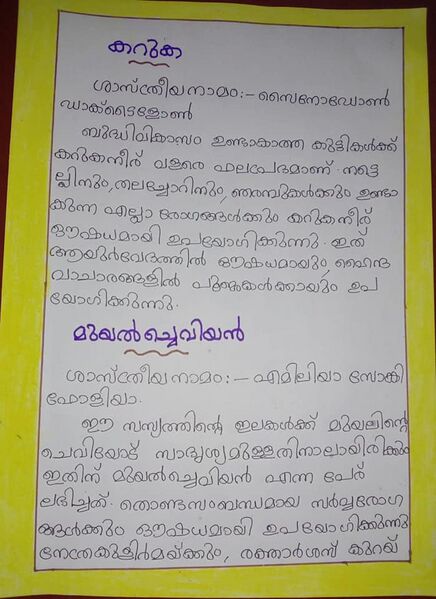 കറുക
ശാസ്ത്രീയനാമം:- സൈനോഡോൺ
ഡാക്ടൈളോൺ
ബുദ്ധിവികാസം ഉണ്ടാകാത്ത കുട്ടികൾക്ക്
കറുകനീര് വളരെ ഫലപ്രദമാണ്. നട്ടെ
ല്ലിനും, തലച്ചോറിനും, ഞരമ്പുകൾക്കും ഉണ്ടാ
കുന്ന എല്ലാ രോഗങ്ങൾക്കും കറുകനീര്
ഔഷധമായി ഉപയോഗിക്കുന്നു. ഇത്
ആയുർവേദത്തിൽ ഔഷധമായും, ഹൈന്ദ
വാചാരങ്ങളിൽ പൂജകൾക്കായും ഉപ
യോഗിക്കുന്നു.
മുയൽച്ചെവിയൻ
ശാസ്ത്രീയനാമം:- എമിലിയാ സോങ്കി
ഫോളിയാ.
ഈ സസ്യത്തിന്റെ ഇലകൾക്ക് മുയലിന്റെ
ചെവിയോട് സാദൃശ്യമുള്ളതിനാലായിരിക്കും
ഇതിന് മുയൽച്ചെവിയൻ എന്ന പേര്
ലഭിച്ചത്. തൊണ്ടസംബന്ധമായ സർവ്വരോഗ
ങ്ങൾക്കും ഔഷധമായി ഉപയോഗിക്കുന്നു
നേത്രകുളിർമയ്ക്കും, രക്താർശസ് കുറയ്